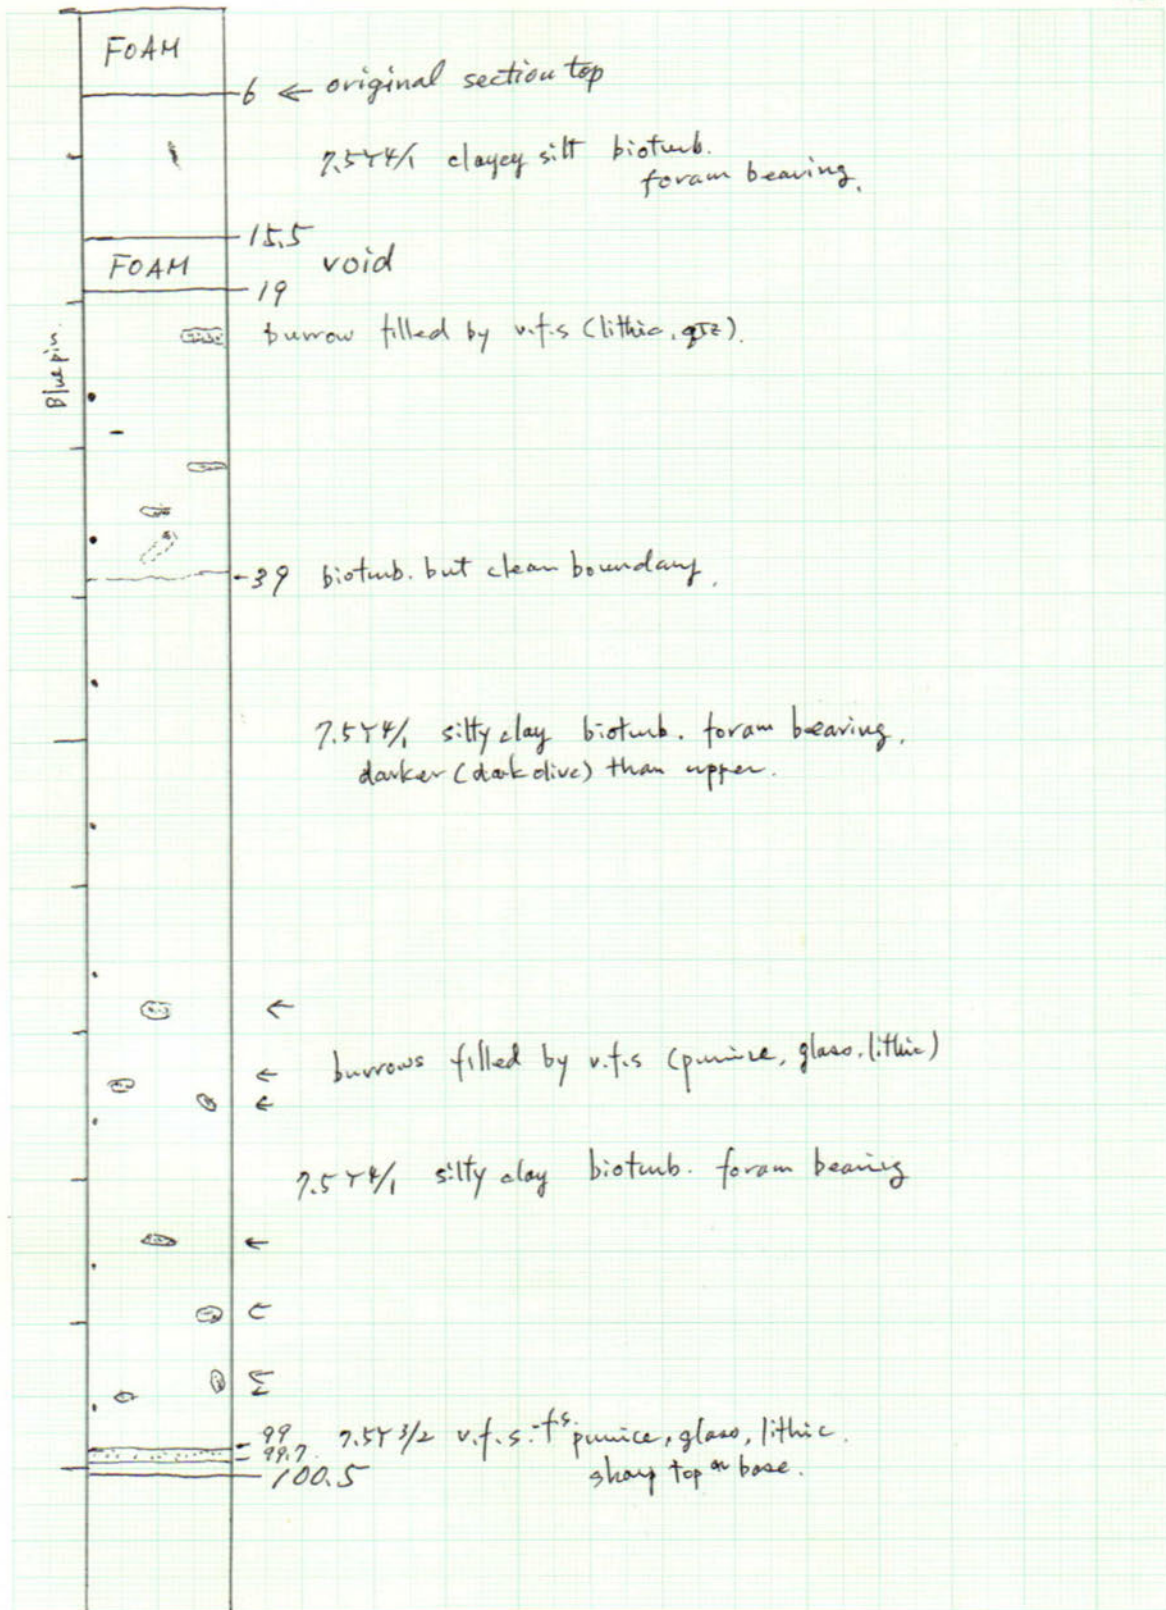 FOAM
6 ← original section top
7.5Y4/1 clayey silt bioturb.
foram bearing.
15.5
FOAM void
19
burrow filled by v.f.s (lithic, qtz).
Blue pin.
39 bioturb. but clean boundary.
7.5Y4/1 silty clay bioturb. foram bearing.
darker (dark olive) than upper.
←
burrows filled by v.f.s (pumice, glass, lithic)
←
←
7.5Y4/1 silty clay bioturb. foram bearing
←
99 7.5Y3/2 v.f.s.-f.s. pumice, glass, lithic.
99.7 sharp top base.
100.5